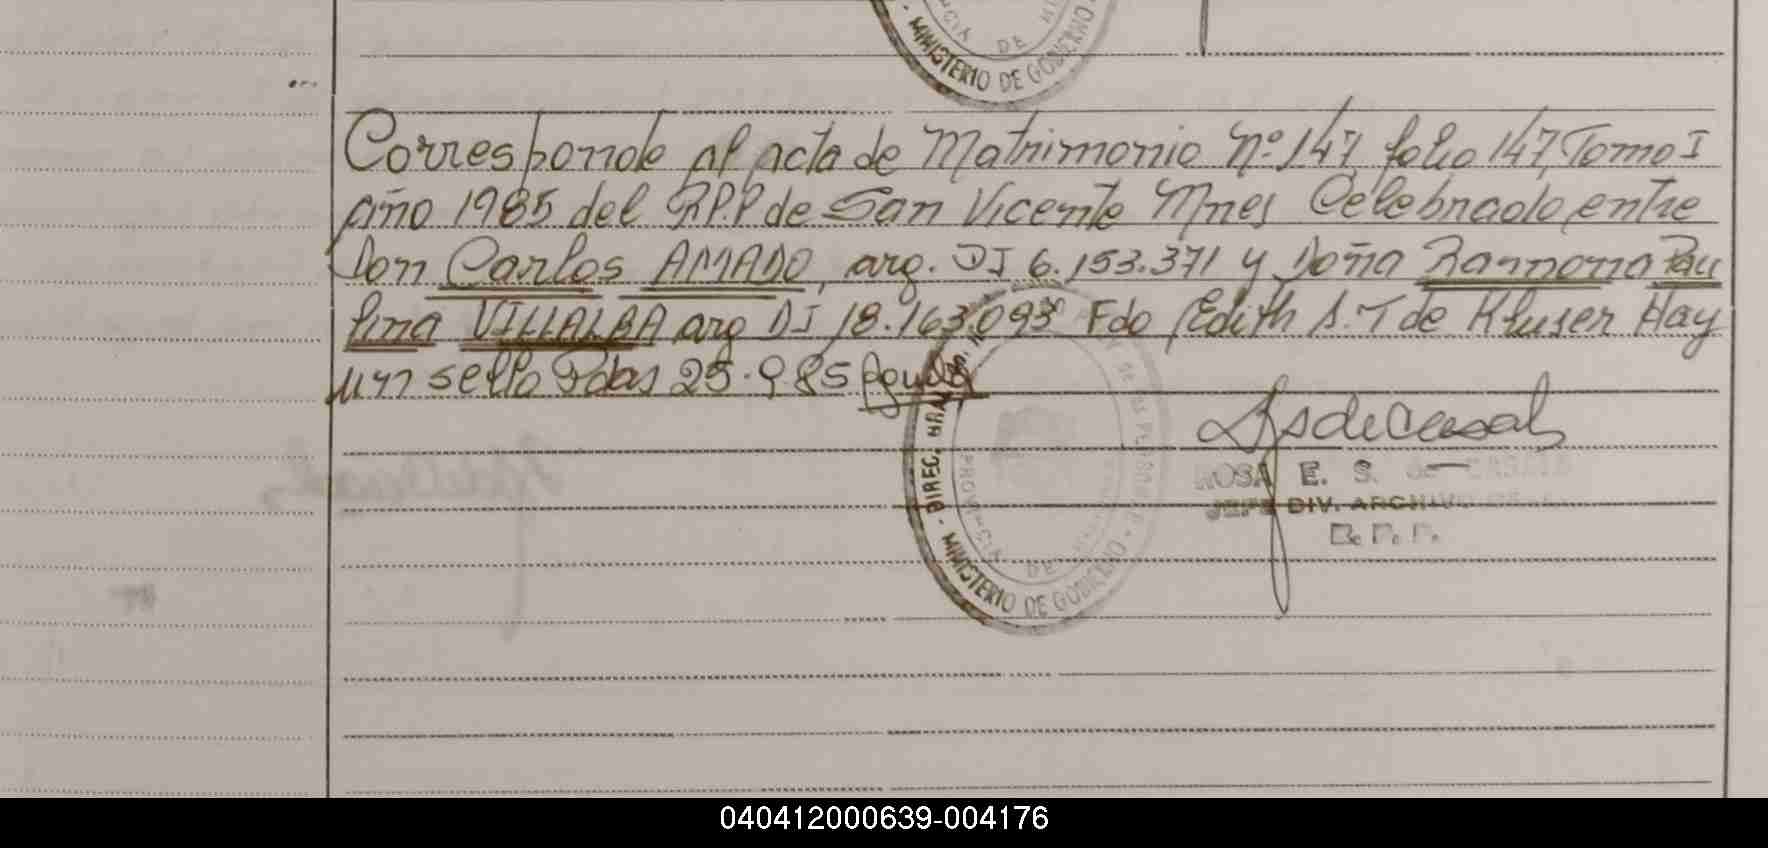 MINISTERIO DE GOBIERNO
DE
Corresponde al acta de Matrimonio Nº 147, folio 147, Tomo I
año 1985 del R.P.P de San Vicente Mnes Celebrado entre
Don Carlos AMADO, arg. DI 6.153.371 y Doña Ramona Pau
lina VILLALBA arg DI 18.163.093 Fdo Edith S. T de Kluser Hay
un sello Pdas 25.9.85
DIREC.
MINISTERIO DE GOBIERNO
ROSA E. S. de
JEFE DIV. ARCHIVO
040412000639-004176